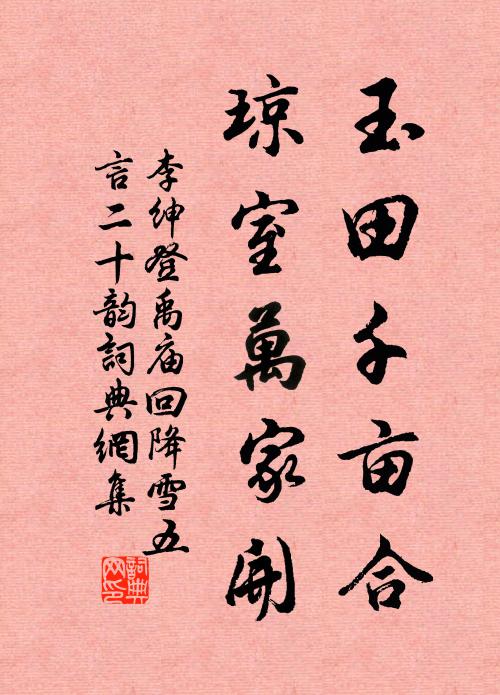 玉田千亩合
琼室萬家開
李紳登禹庙回降雪五
言二十韵詞典網集
詞典
网印